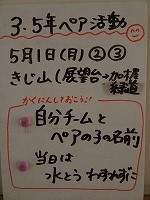 3.5年ペア活動
5月1日(月)②③
きじ山(展望台→加木屋
緑道
かくにんしておこう!
自分チームと
ペアの子の名前
当日は
水とうわすれずに